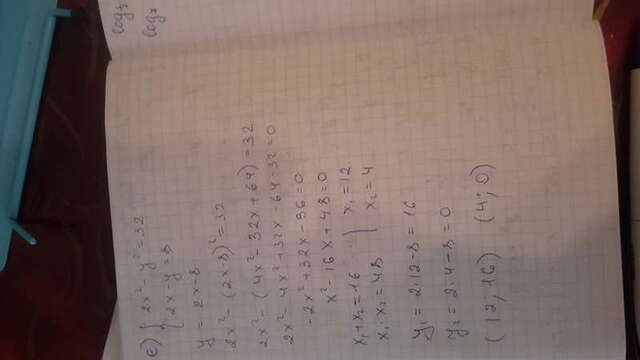 log₃
log₂
c) { 2x² - y² = 32
{ 2x - y = 8
y = 2x - 8
2x² - (2x - 8)² = 32
2x² - (4x² - 32x + 64) = 32
2x² - 4x² + 32x - 64 - 32 = 0
-2x² + 32x - 96 = 0
x² - 16x + 48 = 0
x₁ + x₂ = 16 } x₁ = 12
x₁ x₂ = 48 } x₂ = 4
y₁ = 2·12 - 8 = 16
y₂ = 2·4 - 8 = 0
(12; 16) (4; 0)